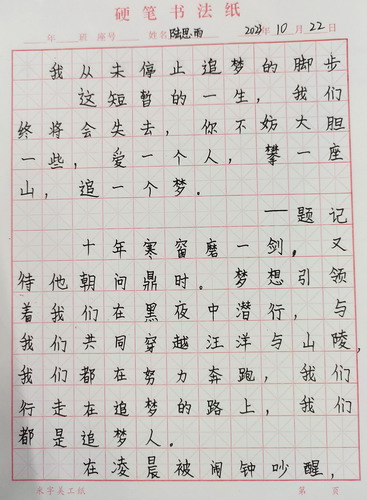 硬笔书法纸
年 班 座号 姓名 陆思雨 2021年10月22日
我从未停止追梦的脚步
这短暂的一生，我们
终将会失去，你不妨大胆
一些，爱一个人，攀一座
山，追一个梦。
——题记
十年寒窗磨一剑。又
待他朝问鼎时。梦想引领
着我们在黑夜中潜行，与
我们共同穿越汪洋与山陵，
我们都在努力奔跑，我们
行走在追梦的路上，我们
都是追梦人。
在凌晨被闹钟吵醒，
米字美工版 第 页